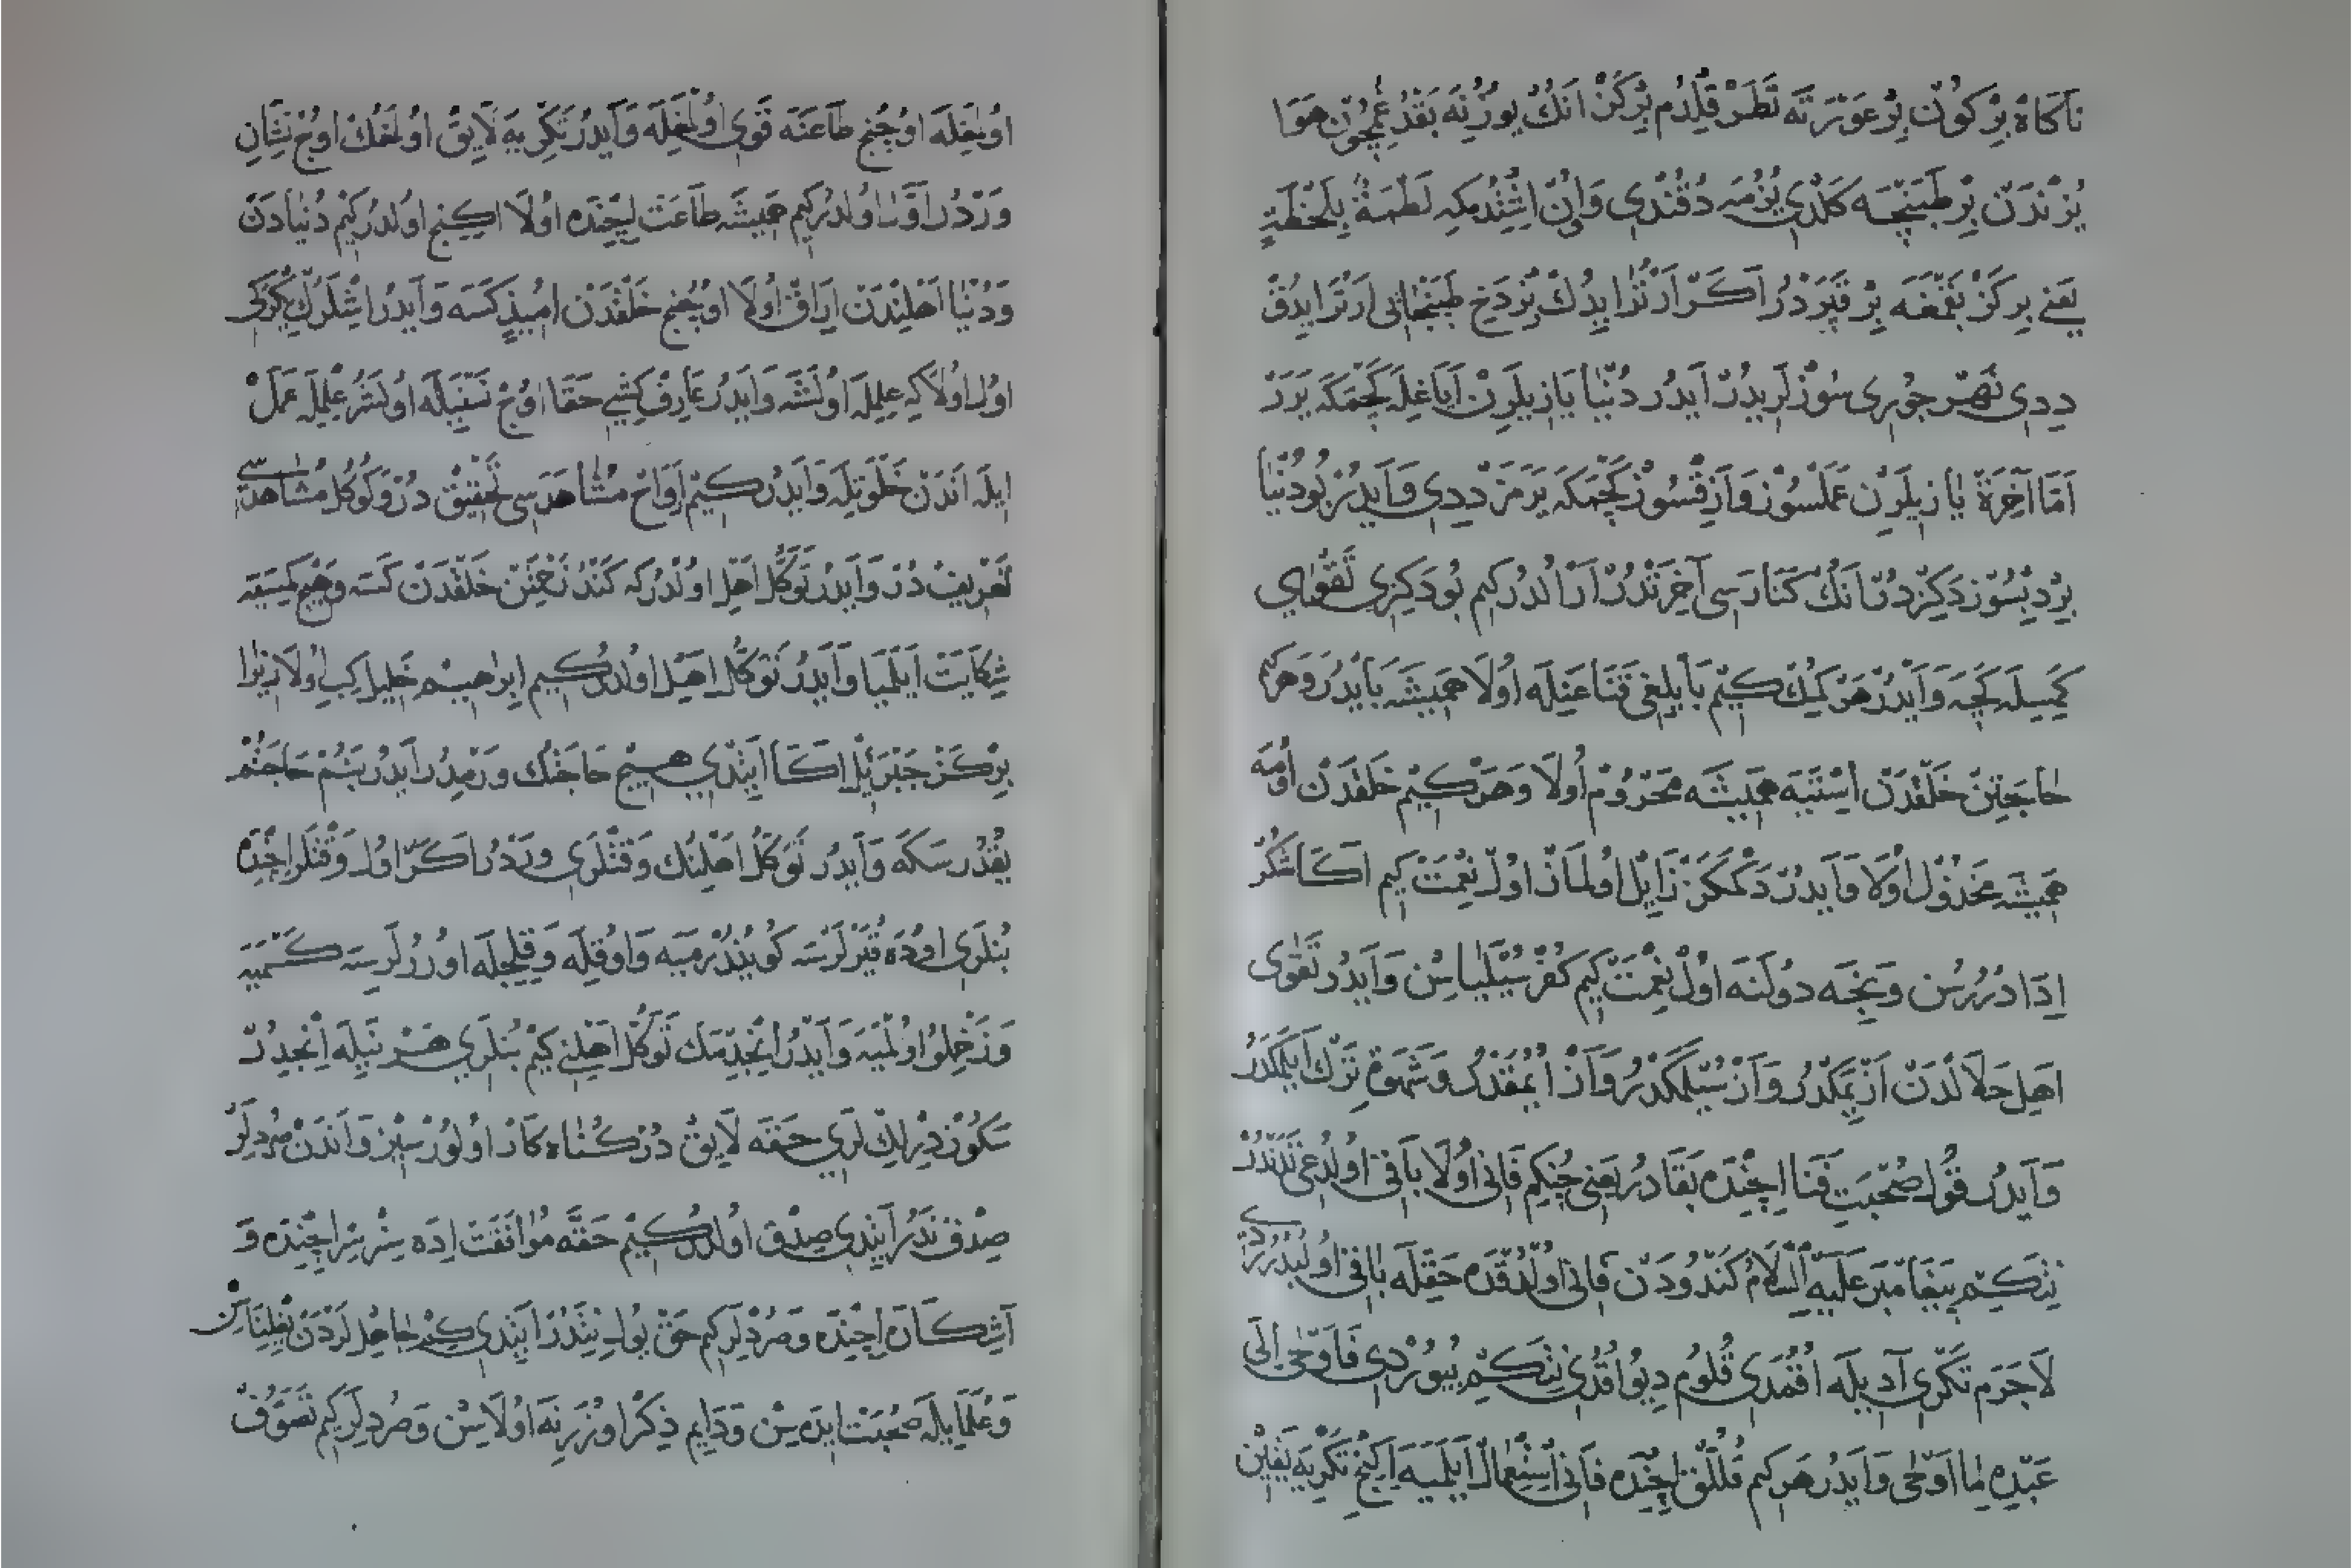 ناكاه بركون برعورته نظر قلدم بركز انك يوزنه بقدغمچون هوا
يزندن بر طبنچه كلدى يزمه دقندى واون اشتدمكه لطمة بلحظة
يعنى بركز بقمغه بر قپردر اكر ارترايدك بزدخ طبنجاتى ارترايدق
ددى نهر جورى سوزلريدر ايدر دنيا يازيلرن اياغله كچمكه يرر
اما آخرة يازيلرن عملسوز وازقسوز كچمكه يرمز ددى وايدر بودنيا
بردبسوز دكزدر انك كنارسى آخرتدر ارالدركيم بودكزى تقواى
كميسله كچه وايدر هر كمك كيم بايلغى قناعتله اولا هميشه بايدر وهركيم
حاجتن خلقدن استيه هميشه محروم اولا وهركيم خلقدن اومه
هميشه مخذول اولا وايدر دكمكز زايل اولماز اول نعمت كيم اكا شكر
ادا دررسن ونجه دولتنه اول نعمت كيم كفر سيليا سن وايدر تقوى
اهل حلالدن از يمكدر واز سيلمكدر واز ايمقدر وشهوة ترك ايلمكدر
وايدر قول صحبت فنا اچنده بقادر يعنى چنكم فانى اولا باقى اولدغى ندندر
نتكيم پيغامبر عليه السلام كندودن فانى اولدقده حقله باقى اولدى
لاجرم تكرى آديله اقمدى قلوم ديو اقدى نتكيم بيوردى فاوحى الى
عبده ما اوحى وايدر هركيم قللق اچنده فانى استعمال ايلميه اكنج تكريه يقين
اولغله اوچنج طاعته قوى اولغله وايدر تكريه لايق اولمغك اوچ نشان
وردر اول اولدركيم هميشه طاعت ايچنده اولا اكنج اولدركيم دنيادن
ودنيا اهليندن ايراق اولا اوچنج خلقدن اميذ كسه وايدر اشلرك يكركى
اول اولاكه علمله اولشه وايدر عارف كشى حقا اوچ نسنيله اولشر علمله عمل
ايله اندن خلوتله وايدر كيم ارواح مشاهدسى تحقيق در وكوكل مشاهدسى
تعريف در وايدر توكل اهل اولدركه كندو نعتن خلقدن كسه وهيچ كمسيه
شكايت ايلميا وايدر توكل اهل اولدركيم ابرهيم خليل كبى اولا زيرا
بركز جبرئيل اكا ايتدى هيچ حاجتك ورميدر ايدر بنم حاجتم
يقدر سكه وايدر توكل اهلنك وقتلرى وردر اكر اول وقتلر اچنده
بنلرى اوده قيرلرسه كويندرميه واوقله وقلجله اورلرسه كسميه
وزخملو اولميه وايدر انجدمك توكل اهلنى كيم بنلرى هر نييله انجدر
سكوزديرلك لرى حقه لايق در كناه كار اولورسيز واندن صردلر
صدق ندر ايتدى صدق اولدركيم حقه موافقت اده سر سر اچنده و
آشكاره اچنده وصردلركم حق يول نتدر ايتدى كيم جاهللردن يغلناسن
وعلما يله صحبت ايده سن ودايم ذكر اوزرنه اولاسن وصردلركم تصوف